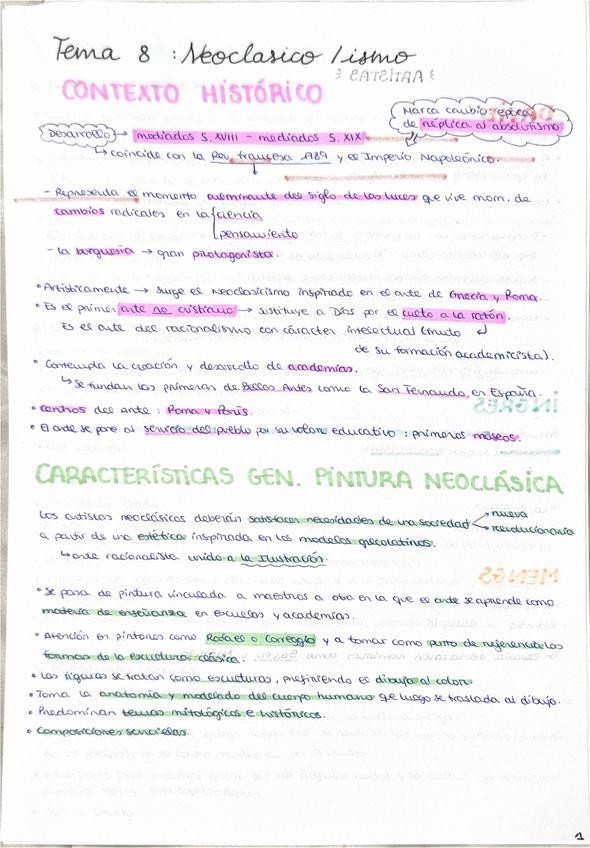 Tema 8 : Neoclasico / ismo
CONTEXTO HISTÓRICO
Marca cambio época
de réplica al absolutismo
Desarrollo → mediados S. XVIII - mediados S. XIX
↳ coincide con la Rev. francesa 1789 y el Imperio Napoleónico.
- Representa el momento culminante del siglo de las luces que vive mom. de
cambios radicales en la ciencia
pensamiento
- La burguesía → gran protagonista.
• Artísticamente → surge el Neoclasicismo inspirado en el arte de Grecia y Roma.
• Es el primer arte no cristiano → sustituye a Dios por el culto a la razón.
Es el arte del racionalismo con carácter intelectual (fruto
de su formación academicista).
• Contempla la creación y desarrollo de academias.
↳ Se fundan las primeras de Bellas Artes como la San Fernando, en España.
• Centros del Arte : Roma y París.
• El arte se pone al servicio del pueblo por su valor educativo : primeros museos.
CARACTERÍSTICAS GEN. PINTURA NEOCLÁSICA
Los artistas neoclásicos deberán satisfacer necesidades de una sociedad → nueva
→ revolucionaria
a partir de una estética inspirada en los modelos grecolatinos.
↳ arte racionalista unido a la Ilustración.
• Se pasa de pintura vinculada a maestros a otra en la que el arte se aprende como
materia de enseñanza en escuelas y academias.
• Atención en pintores como Rafael o Correggio y a tomar como punto de referencia las
formas de la escultura clásica.
• Las figuras se tratan como esculturas, prefiriendo el dibujo al color.
• Toma la anatomía y modelado del cuerpo humano que luego se traslada al dibujo.
• Predominan temas mitológicos e históricos.
• Composiciones sencillas.
1